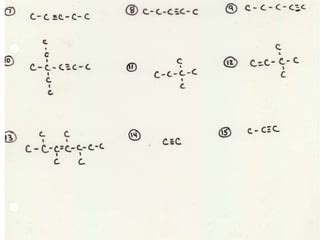 7 C-C≡C-C-C
8 C-C-C≡C-C
9 C-C-C-C≡C
10
C
C
C-C-C≡C-C
C
C
11
C
C-C-C-C
C
12
C
C≡C-C-C
C
13
C C
C-C-C=C-C-C-C
C C
14
C≡C
15
C-C≡C